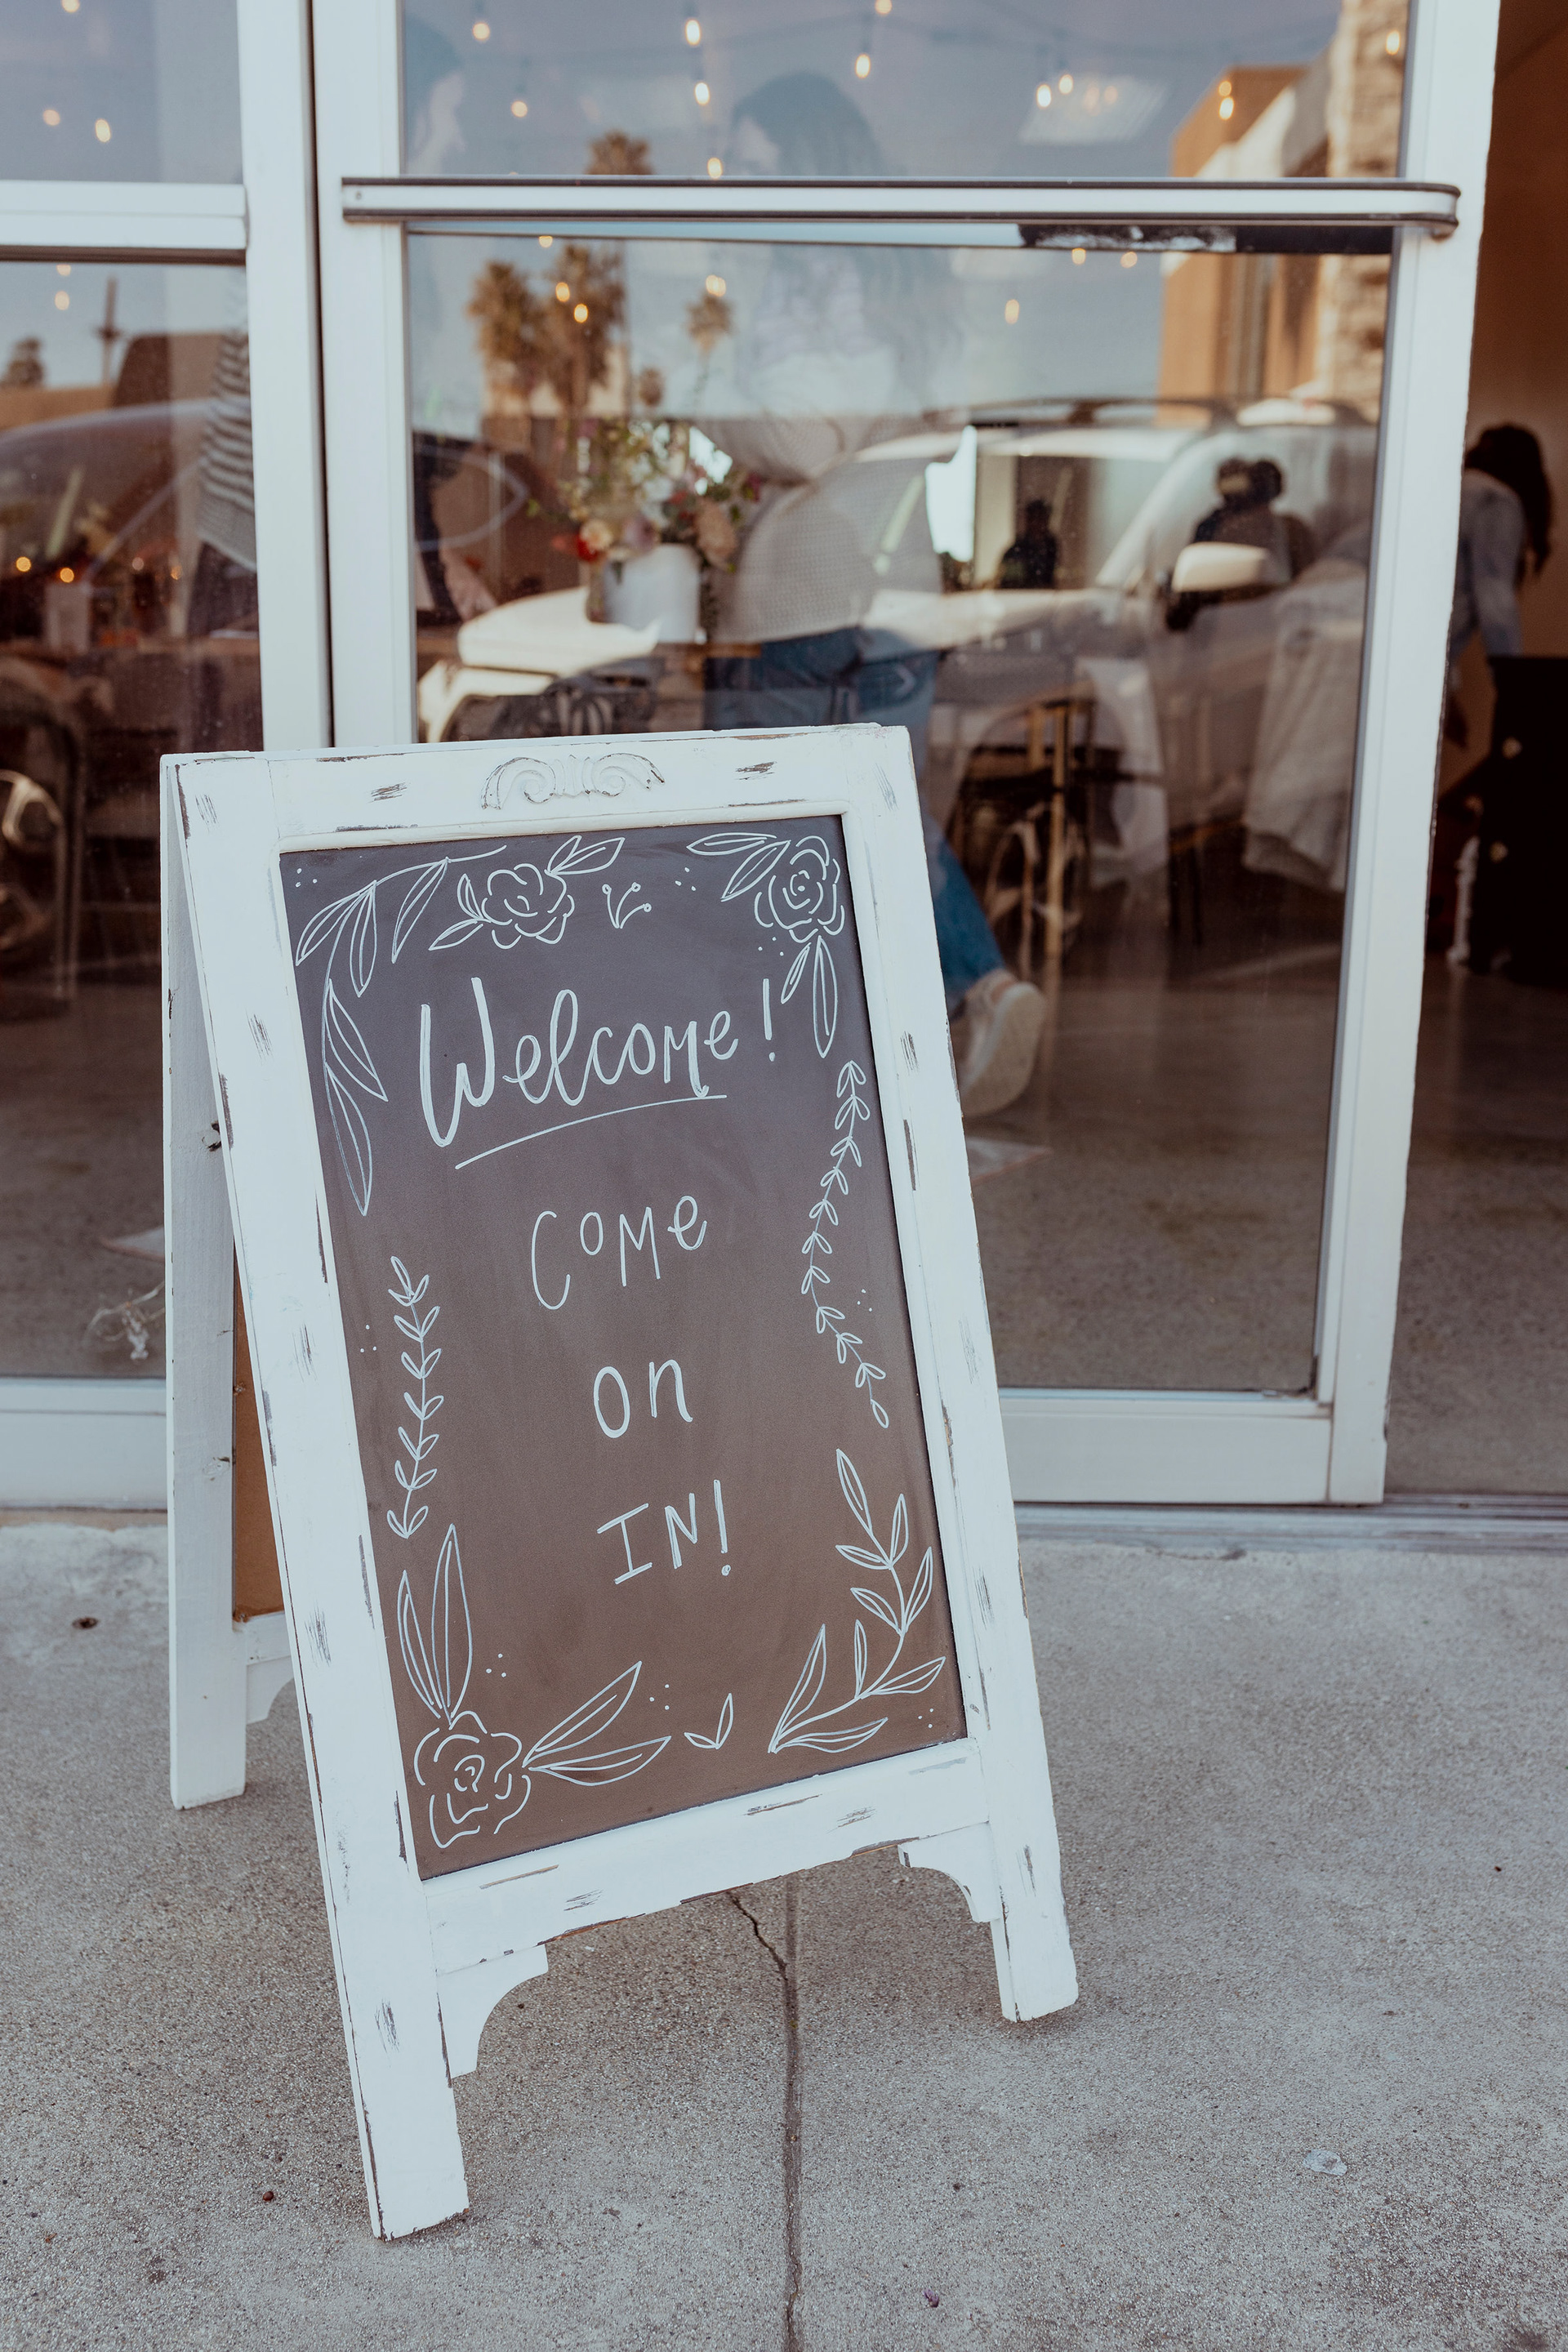 Welcome!
COMe
on
IN!